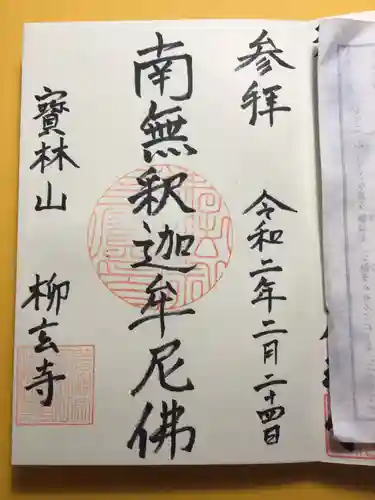 参拝
令和二年二月二十四日
南無釈迦牟尼佛
寳林山
柳玄寺